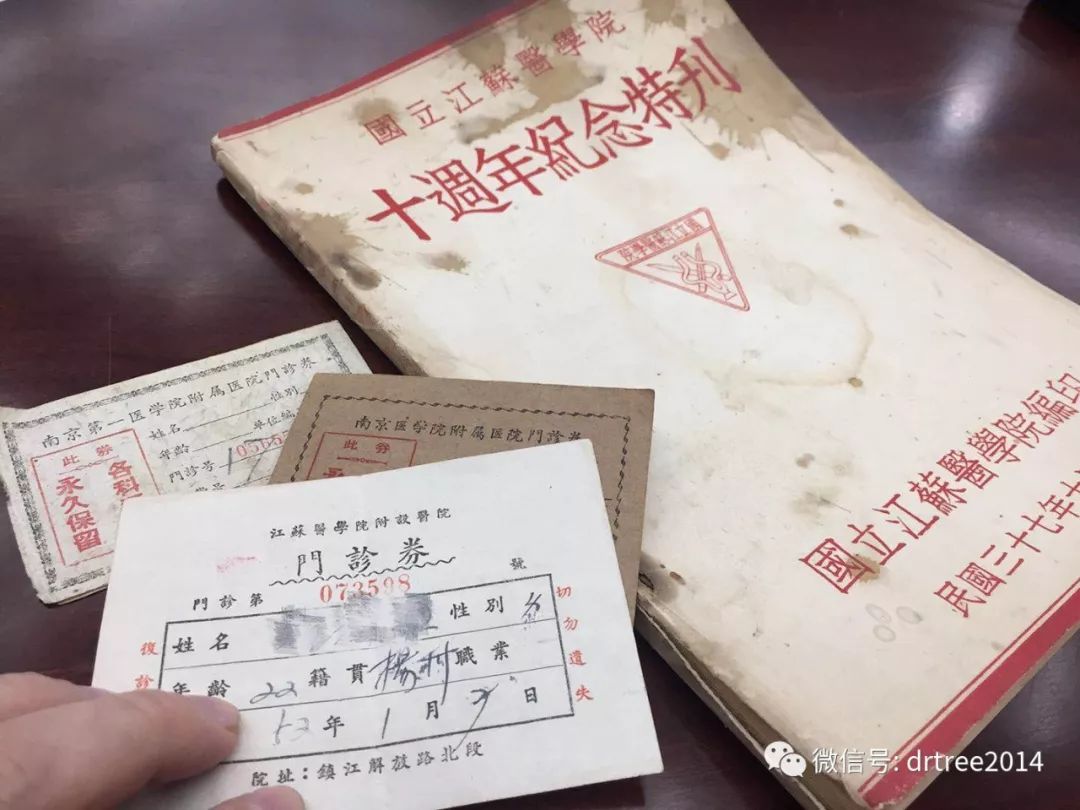 國立江蘇醫學院
十週年紀念特刊
國立江蘇醫學院
國立江蘇醫學院編印
民國三十七年十
南京第一医学院附属医院門診券
姓名 性别
年龄 单位編
門診号
此券
各科
永久保留
南京医学院附属医院門診券
此券
江蘇醫學院附設醫院
門診券
門診第 073598 號
姓名 性別
年齡 22 籍貫 楊村 職業
52年1月 日
復診
切勿遺失
院址：鎮江解放路北段
微信号: drtree2014